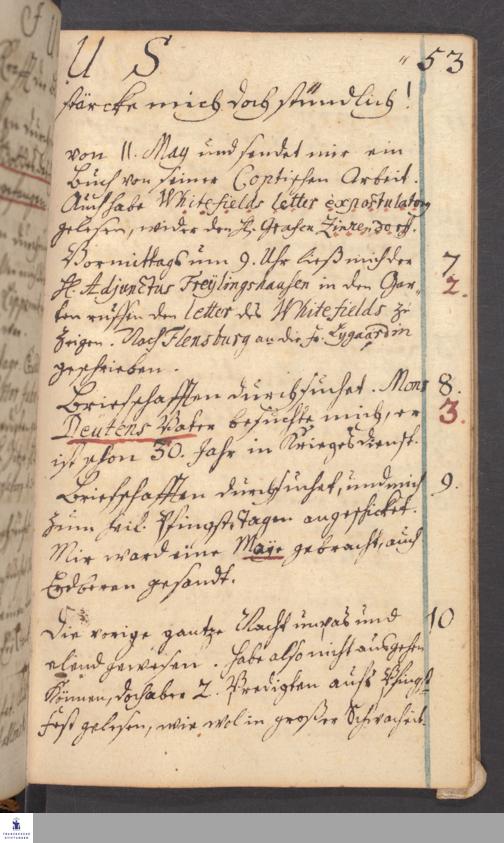 U S " 53
stärcke mich doch stündlich!
von 11. May und sendet mir ein
Buch von seiner Coptischen Arbeit.
Auch habe Whitefields letter expostulatory
gelesen, wider den H. Grafen Zinzendorff.
Vormittags um 9. Uhr ließ mich der 7
H. Adjunctus Freylingshausen in den Gar- 2.
ten ruffen den letter des Whitefields zu
zeigen. Nach Flensburg an die Fr. Lygaardin
geschrieben.
Briefschafften durchsuchet. Mons 8.
Deutens Vater besuchte mich, er 3.
ist schon 30. Jahr in Kriegesdienst.
Briefschafften durchsuchet, und mich 9.
zum heil. Pfingst-Tagen angeschicket.
Mir ward eine Maye gebracht, auch
Erdberen gesandt.
Die vorige gantze Nacht unpas und 10
elend gewesen. Habe also nicht ausgehen
können, doch aber 2. Predigten aufs Pfingst-
Fest gelesen, wie wol in großer Schwachheit.
FRANCKESCHE
STIFTUNGEN